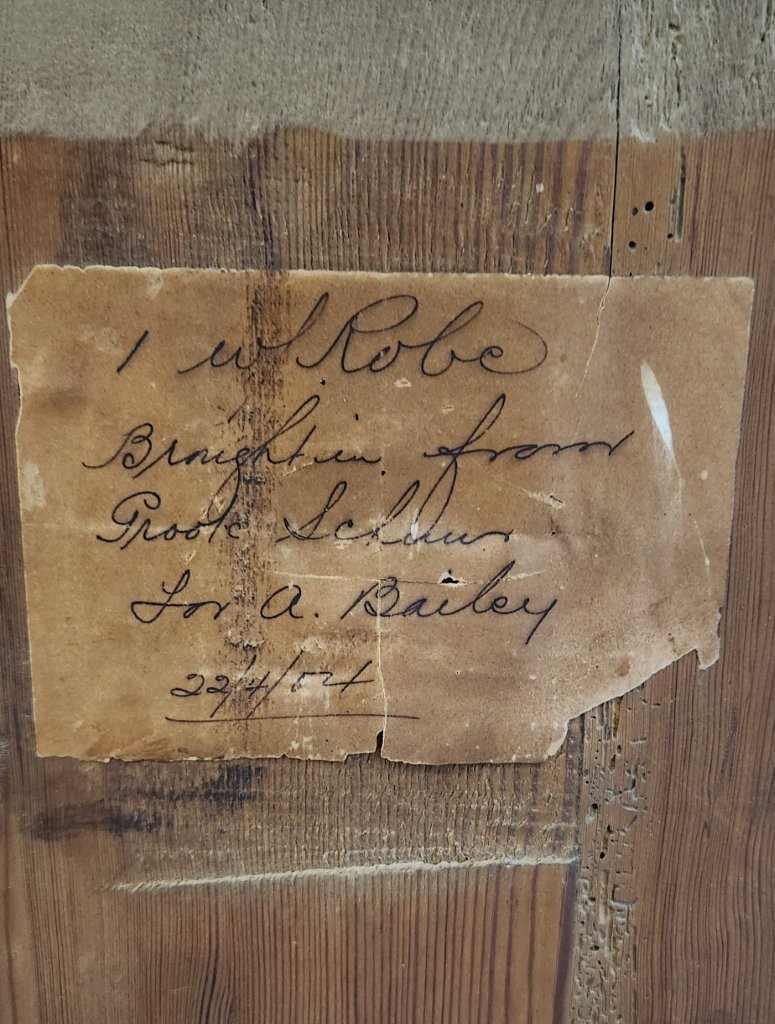 1 w/Robe
Brought in from
Groote Schuur
for A. Bailey
22/4/04